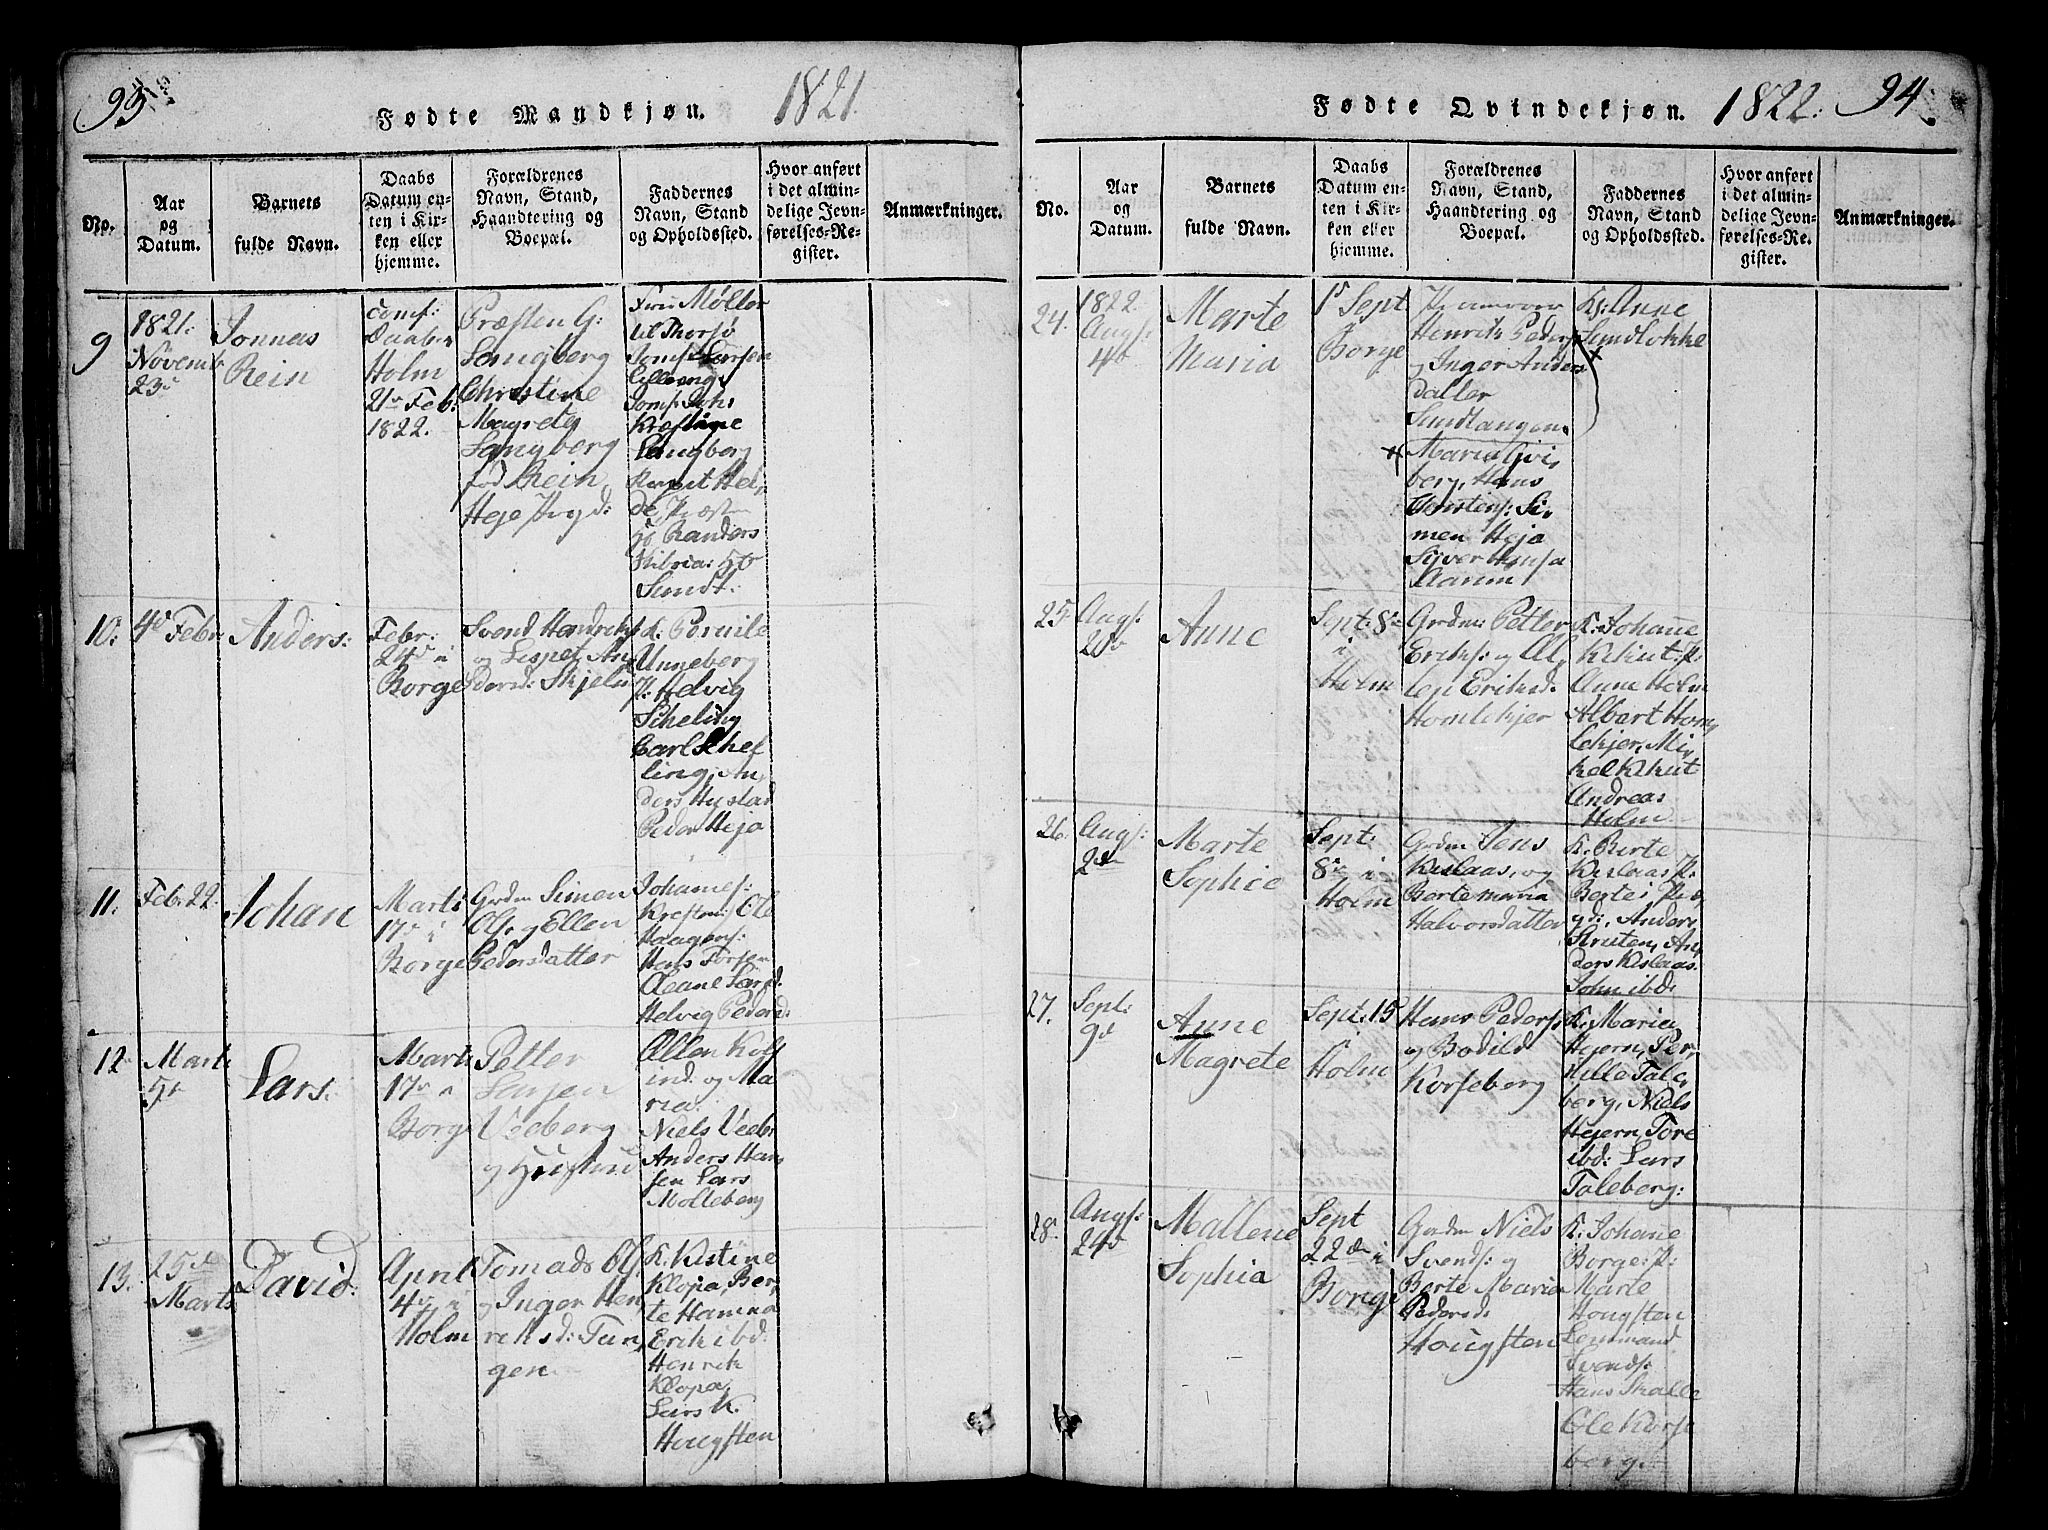 93
Fødte Mandkjøn. 1821.
No.
Aar
og
Datum.
Barnets
fulde Navn.
Daabs
Datum en-
ten i Kir-
ken eller
hjemme.
Forældrenes
Navn, Stand,
Haandtering og
Boepæl.
Faddernes
Navn, Stand
og Opholdssted.
Hvor anført
i det almin-
delige Jevn-
førelses-Re-
gister.
Anmærkninger.
9
1821.
Novemb
23
Jonnas
Rein
comf:
Daaben
Holm
21 Feb:
1822.
Præsten G:
Langberg
Christine
Magrete
Langberg
fød Rein
Heje
Møller
til Thorsø
Jomf Larsen
Jomf
Krestine
Langberg
Randers
Sundt.
10:
4 Febr
Anders:
Febr:
24 i
Borge
Svend Hendriks
og Lispet An,
dersd: Skjeln
K: Pernile
Unneberg
P: Helvig
Scheling
Carl Schel
ling, An,
ders Hystad
Peder Heja
11.
Feb. 22.
Johan
Marti
17 i
Borge
Grdm Simen
Ols. og Ellen
Pedersdatter
Johannes:
Kresten: Ole
Haagens:
Hans Torsen
Oleane Larsd:
Helvig Pedersd:
12
Marti
5
Lars:
Marti
17
Borge
Petter
Larsen
Veeberg
og Hustru
Ellen Kols
ind. og Ma
ria.
Niels Veeber
Anders Han,
sen Lars
Molleberg
13.
25
Marts
David:
April
4 i
Holm
Tomas Ols
og Inger Hen
reksd: Tun,
gen
K. Kistine
Klopa, Ber,
te Hanna
Erik ibd:
Henrik
Klopa,
Lars K.
Hougsten
94
Fødte Qvindekjøn. 1822.
No.
Aar
og
Datum.
Barnets
fulde Navn.
Daabs
Datum en-
ten i Kir-
ken eller
hjemme.
Forældrenes
Navn, Stand,
Haandtering og
Boepæl.
Faddernes
Navn, Stand
og Opholdssted.
Hvor anført
i det almin-
delige Jevn-
førelses-Re-
gister.
Anmærkninger.
24.
1822.
Augs:
4
Marte
Maria
1 Sept
Borge
Henrik Peders
og Inger Anders
datter
Sundlangen
Maria
berg, Hans
Chrestens: Si,
men Heja
Syver Hansa
K: Anne
Sundløkke
25
Augs:
20
Anne
Sept: 8
i
Holm
Grdm: Petter
Eriks: og El,
len Eriksd.
Homlekjer
K: Johane
Kikut: P:
Anne Holm
Albart Hom,
lekjer, Mi,
kel Kikut
Andreas
Holm
26.
Augs:
2
Marte
Sophie
Sept:
8 i
Holm
Grdm Jens
Kislaas, og
Berte maria
Halvorsdatter
K: Berte
Kislaas P:
Berte i Præ,
gd:, Anders
Struten, An,
ders Kislaas.
John ibd:
27.
Sept:
9
Anne
Magrete
Sept: 15
Holm
Hans Peders
og Bodild
Korseberg
K: Maria
Hjern, Per,
nille Tale,
berg, Niels
Hjern, Tore
ibd: Lars
Taleberg:
28.
Augs:
24
Mallene
Sophia
Sept
22 i
Borge
Gordm Niels
Svends: og
Berte Maria
Pedersd:
Hougsten
K: Johane
Borge: P:
Marte
Hougsten
Lensmand
Svends:
Hans Skalle
Ole Korse
berg.